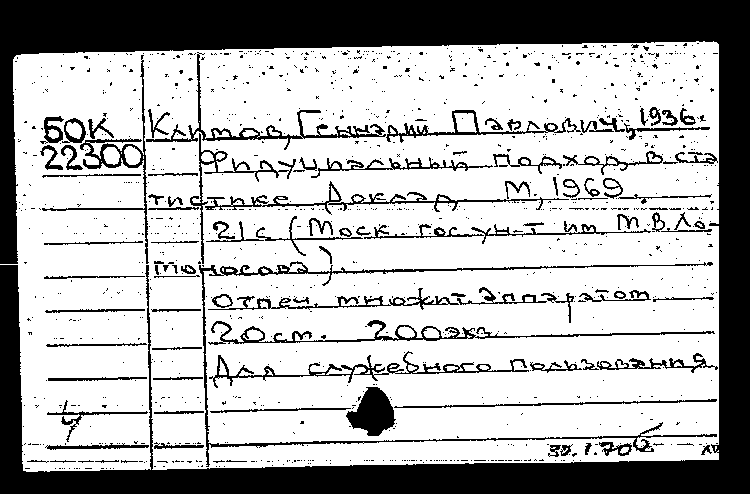 БОК Климов, Геннадий Павлович, 1936-
22300 Фидуциальный подход в ста
тистике Доклад М, 1969.
21с (Моск. гос. ун-т им М.В.Ло-
моносова).
Отпеч. множит. аппаратом
20см. 200экз
Для служебного пользования.
4